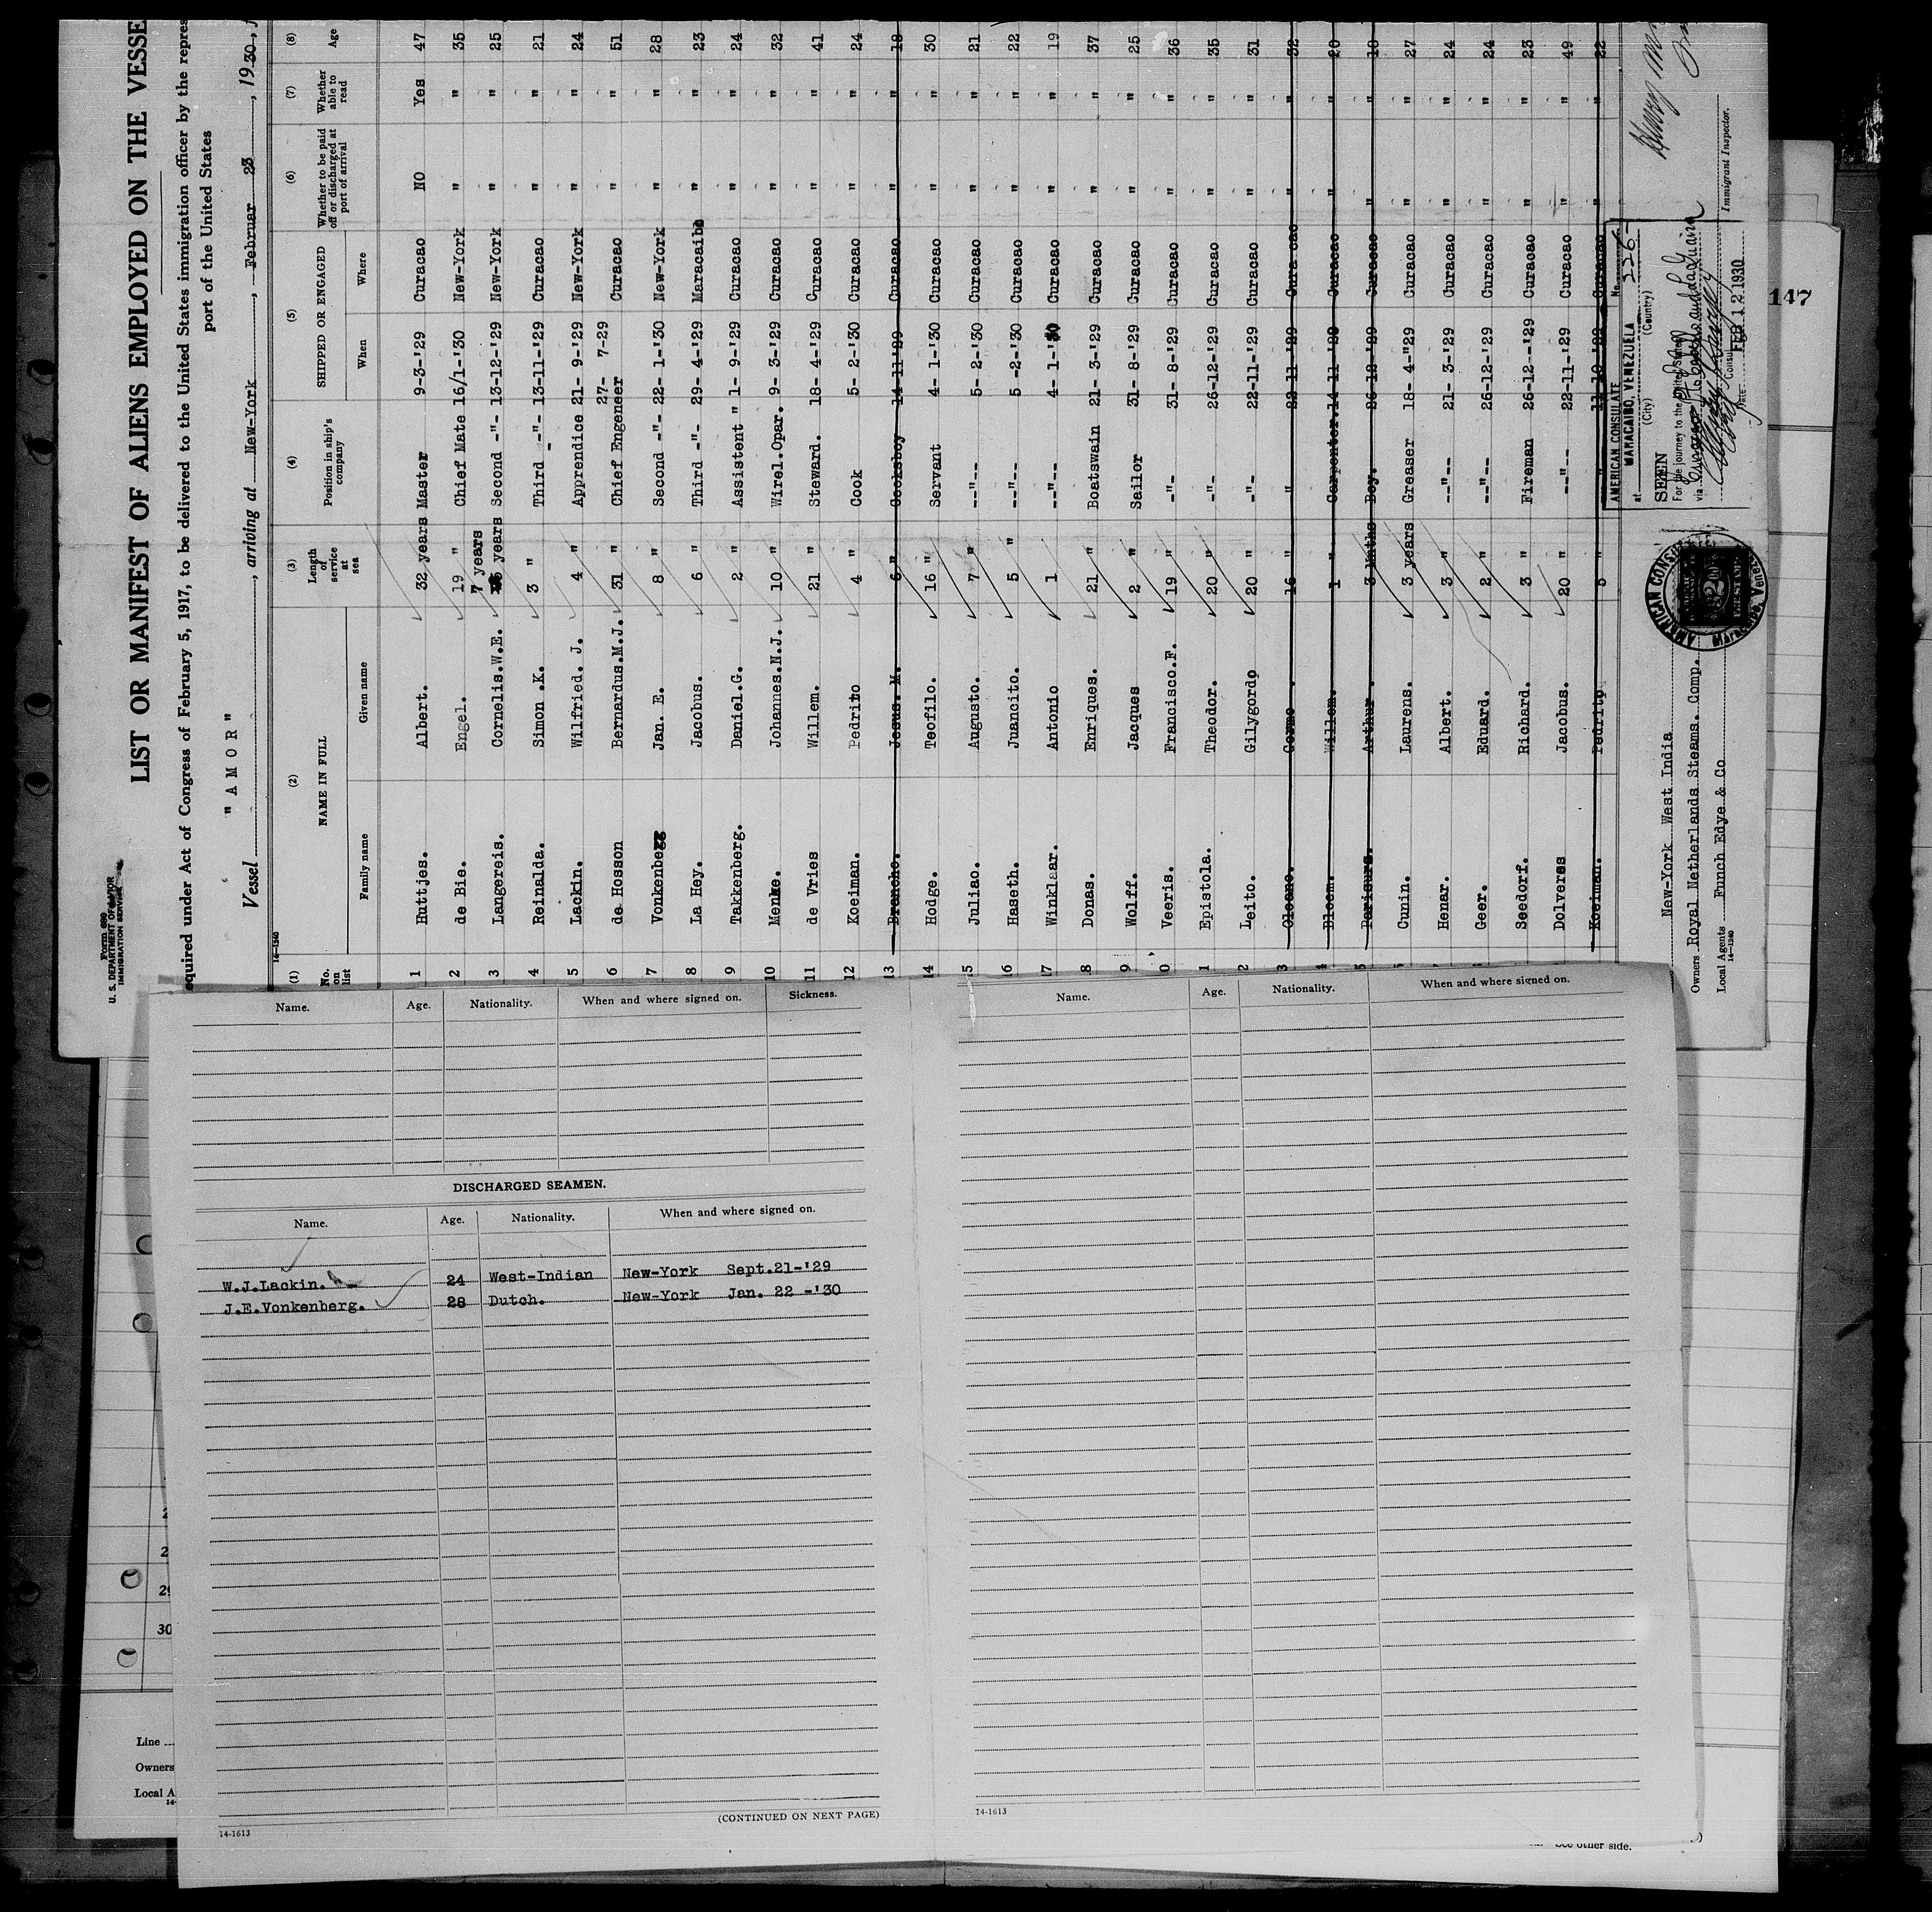 Form 689
U. S. DEPARTMENT OF LABOR
IMMIGRATION SERVICE
LIST OR MANIFEST OF ALIENS EMPLOYED ON THE VESSE
equired under Act of Congress of February 5, 1917, to be delivered to the United States immigration officer by the repres
port of the United States
Vessel "AMOR", arriving at New-York, Februar 23, 1930,
14-1240
(1) (2) (3) (4) (5) (6) (7) (8)
No. on list NAME IN FULL Length of service at sea Position in ship's company SHIPPED OR ENGAGED Whether to be paid off or discharged at port of arrival Whether able to read Age
Family name Given name When Where
1 Huttjes. Albert. 32 years Master 9-3-'29 Curacao NO Yes 47
2 de Bie. Engel. 19 " Chief Mate 16/1-'30 New-York " " 35
3 Langereis. Cornelis.W.E. 7 years years Second -"- 13-12-'29 New-York " " 25
4 Reinalda. Simon .K. 3 " Third -"- 13-11-'29 Curacao " " 21
5 Lackin. Wilfried. J. 4 " Apprendice 21- 9-'29 New-York " " 24
6 de Hosson Bernardus.M.J. 31 " Chief Engeneer 27- 7-29 Curacao " " 51
7 Vonkenberg Jan. E. 8 " Second -"- 22- 1-'30 New-York " " 28
8 La Hey. Jacobus. 6 " Third -"- 29- 4-'29 Maracaibo " " 23
9 Takkenberg. Daniel.G. 2 " Assistent " 1- 9-'29 Curacao " " 24
10 Menke. Johannes.N.J. 10 " Wirel.Opar. 9- 3-'29 Curacao " " 32
11 de Vries Willem. 21 " Steward. 18- 4-'29 Curacao " " 41
12 Koeiman. Pedrito 4 " Cook 5- 2-'30 Curacao " " 24
13 Branche. Jesus. M. 6 " Cooksboy 14-11-'29 Curacao " " 18
14 Hodge. Teofilo. 16 " Servant 4- 1-'30 Curacao " " 30
15 Juliao. Augusto. 7 " --"-- 5- 2-'30 Curacao " " 21
16 Haseth. Juancito. 5 " --"-- 5 -2-'30 Curacao " " 22
17 Winklaar. Antonio 1 --"-- 4- 1-'30 Curacao " " 19
8 Donas. Enriques. 21 " Boatswain 21- 3-'29 Curacao " " 37
9 Wolff. Jacques 2 " Sailor 31- 8-'29 Curacao " " 25
0 Veeris. Francisco.F. 19 " -"- 31- 8-'29 Curacao " " 36
1 Epistola. Theodor. 20 " -"- 26-12-'29 Curacao " " 35
2 Leito. Gilygordo 20 " -"- 22-11-'29 Curacao " " 31
3 Cosmo . 16 " " 22-11-'29 Cura cao " " 32
4 Bloem. Willem. 1 " Carpenter. 14-11-'29 Curacao " " 20
5 Parisurs. Arthur . 3 Mnths Boy. 26-12-'29 Curacao " " 18
Cunin. Laurens. 3 years Greaser 18- 4-"29 Curacao " " 27
Henar. Albert. 3 " --"-- 21- 3-'29 Curacao " " 24
Geer. Eduard. 2 " --"-- 26-12-'29 Curacao " " 24
Seedorf. Richard. 3 " Fireman 26-12--'29 Curacao " " 23
Dolvers Jacobus. 20 " --"-- 22-11-'29 Curacao " " 49
Koeiman. Pedrito 5 " " 11-10-'29 Curacao " 22
New-York West India
Owners Royal Netherlands Steams. Comp.
Local Agents Funch Edye & Co
14-1240
AMERICAN CONSULATE
No. 226
at MARACAIBO, VENEZUELA
(City) (Country)
SEEN
For the journey to the United States
via Curacao
Consul
Date FEB 12 1930
Immigrant Inspector.
147
Name. Age. Nationality. When and where signed on. Sickness.
DISCHARGED SEAMEN.
Name. Age. Nationality. When and where signed on.
W.J.Lackin. 24 West-Indian New-York Sept.21-'29
J.E.Vonkenberg. 28 Dutch. New-York Jan. 22 -'30
(CONTINUED ON NEXT PAGE)
14-1613
Name. Age. Nationality. When and where signed on.
14-1613
See other side.
2
29
30
Line
Owners
Local A
14-